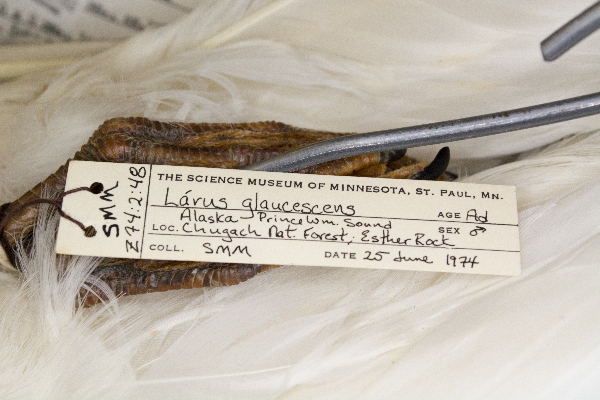 THE SCIENCE MUSEUM OF MINNESOTA, ST. PAUL, MN.
Lárus glaucescens AGE Ad
Alaska Prince Wm. Sound SEX ♂
LOC. Chugach Nat. Forest, Esther Rock
COLL. SMM DATE 25 June 1974
SMM
Z74:2:48